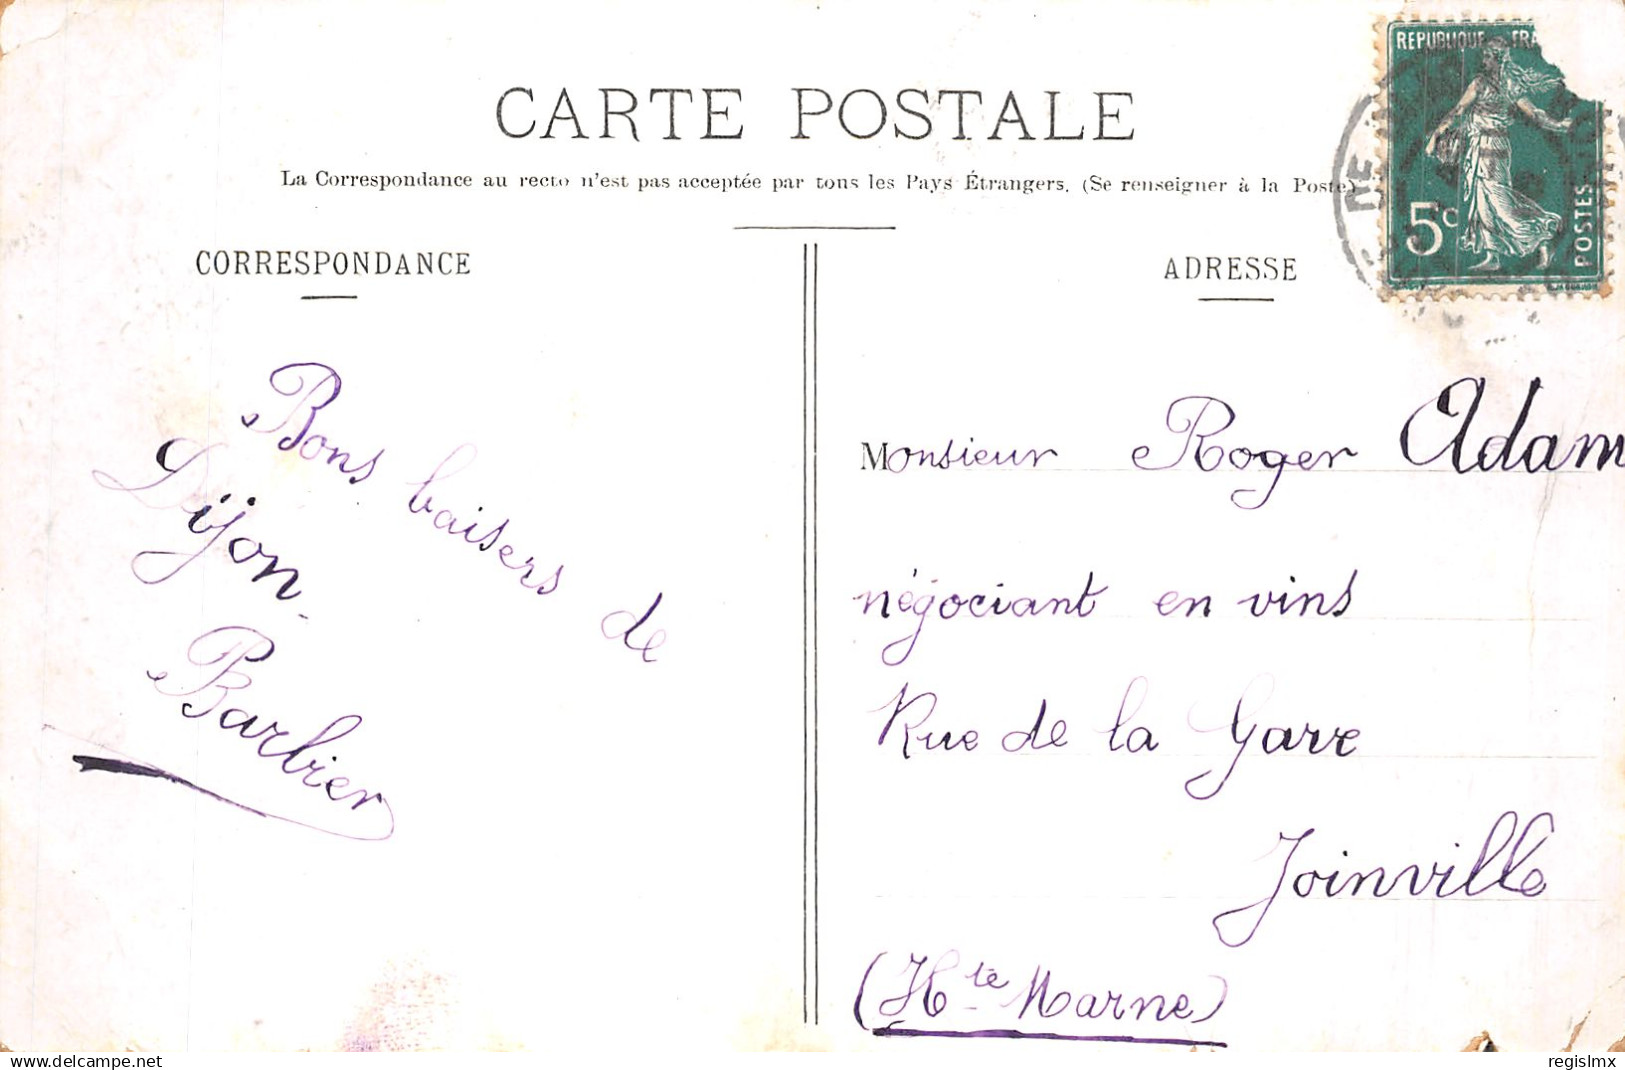 CARTE POSTALE
La Correspondance au recto n'est pas acceptée par tous les Pays Étrangers. (Se renseigner à la Poste)
CORRESPONDANCE
Bons baisers de
Dijon.
Barbier
ADRESSE
REPUBLIQUE FRA
5c
POSTES
Monsieur Roger Adam
négociant en vins
Rue de la Gare
Joinville
(Hte Marne)
delcampe.net
regislmx